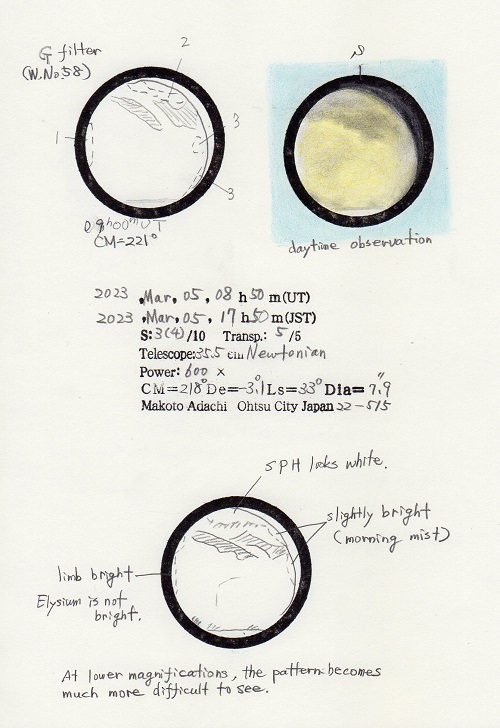 G filter
(W.No58)
2
1
3
3
09h00mUT
CM=221°
S
daytime observation
2023 ,Mar. 05, 08 h 50 m(UT)
2023 ,Mar. 05, 17 h 50 m(JST)
S:3(4)/10 Transp.: 5/5
Telescope:35.5 cm Newtonian
Power: 600 ×
CM=218° De=-3.1° Ls=33° Dia=7.9"
Makoto Adachi Ohtsu City Japan 22-515
SPH looks white.
slightly bright
(morning mist)
limb bright
Elysium is not
bright.
At lower magnifications, the pattern becomes
much more difficult to see.